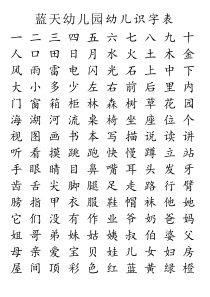 蓝天幼儿园幼儿识字表
一 二 三 四 五 六 七 八 九 十
人 口 田 日 月 水 火 土 木 金
风 雨 雷 电 闪 光 石 上 中 下
大 小 多 少 左 右 前 后 里 内
门 窗 箱 柜 林 森 树 草 花 园
海 湖 河 流 桌 坐 座 位 个
视 图 画 书 本 写 描 说 读 讲
听 看 摸 跳 跑 快 慢 蹲 立 站
手 眼 睛 目 鼻 嘴 耳 头 发 牙
齿 舌 尖 脚 腿 足 走 路 行 臂
膀 指 甲 衣 服 鞋 帽 袜 他 她
它 们 没 有 作 业 爷 奶 爸 妈
姐 哥 弟 妹 姑 姨 叔 伯 婆 父
母 亲 爱 宝 贝 娃 儿 女 妇 房
屋 间 顶 彩 色 红 蓝 黄 绿 橙